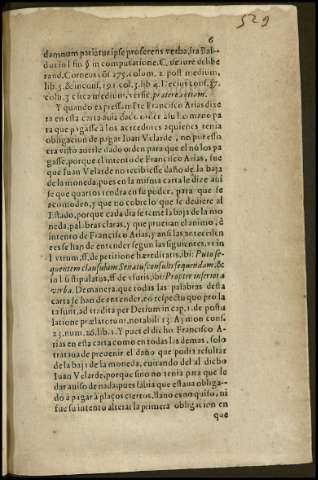 529
6
damnum patiatur ipse proferens verba, ita Bal-
dus in l. fin. § in computatione. C. de iure delibe
rand. Corneus cōs 275. colum. 2. post medium,
lib. 3. & in cons. 191. col. 3. lib. 4. Decius cons. 37.
colu. 3. circa medium, versic. præter eatiam.
Y quando expressamēte Francisco Arias dize
ra en esta carta auia dado orden a su hermano pa
ra que pagasse à los acreedores a quienes tenia
obligacion de pagar Iuan Velarde, no por esso
era visto auerle dado orden para que el no los pa
gasse, porque el intento de Francisco Arias, fue
que Iuan Velarde no recibiesse daño de la baja
de la moneda, pues en la misma carta le dize aui
se que quartos tendra en su poder, para que se
acomoden, y que no cobre lo que se deuiere al
Estado, porque cada dia se teme la baja de la mo
neda, palabras claras, y que prueuan animo, è
intento de Francisco Arias, y assi las antecedēn
tes se han de entender segun las siguientes, vt in
l. vtrum, ff. de petitione hæreditatis, ibi: Puto se-
quentem clausulam Senatusconsulti sequendam, &
in l. si stipulatus, ff. de vsuris, ibi: Propter inferiora
verba. De manera, que todas las palabras desta
carta se han de entender, eo respectu quo prola
ta sunt, ad tradita per Decium in cap. 1. de postu
latione prælatorum, notabili 13. Aymon cons.
23. num. 26. lib. 1. Y pues el dicho Francisco A-
rias en esta carta como en todas las demas, solo
trataua de preuenir el daño que podia resultar
de la baja de la moneda, cuidando del al dicho
Iuan Velarde, porque sino no tenia para que le
dar auiso de nada: pues sabia que estaua obliga-
do à pagar à plaços ciertos, llano es no quiso, ni
fue su intento alterar la primera obligacion en
que